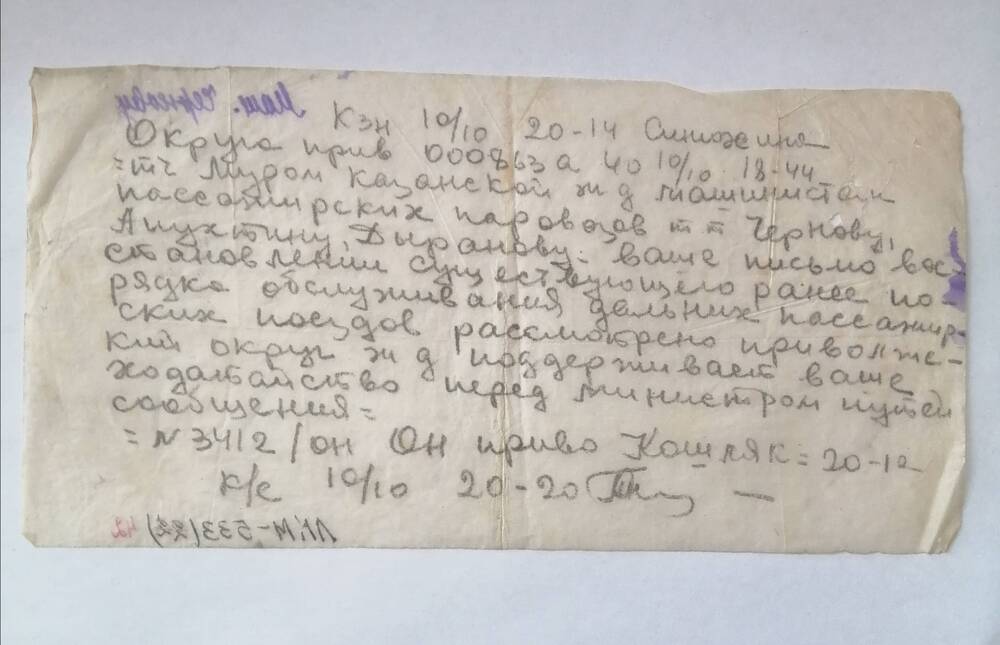 Маш. Чернову
Кзн 10/10 20-14 Синюхина
Округа прив 000863 а 40 10/10 18-44
=тч Муром Казанской ж д машинистам
пассажирских паровозов т т Чернову,
Апухтину, Дыранову: ваше письмо вос-
становлении существующего ранее по-
рядка обслуживания дальних пассажир-
ских поездов рассмотрено приволже-
кий округ ж д поддерживает ваше
ходатайство перед министром путей
сообщения=
=N 3412/он Он приво Кошляк= 20-12
к/с 10/10 20-20
МИМ-533(22) 42